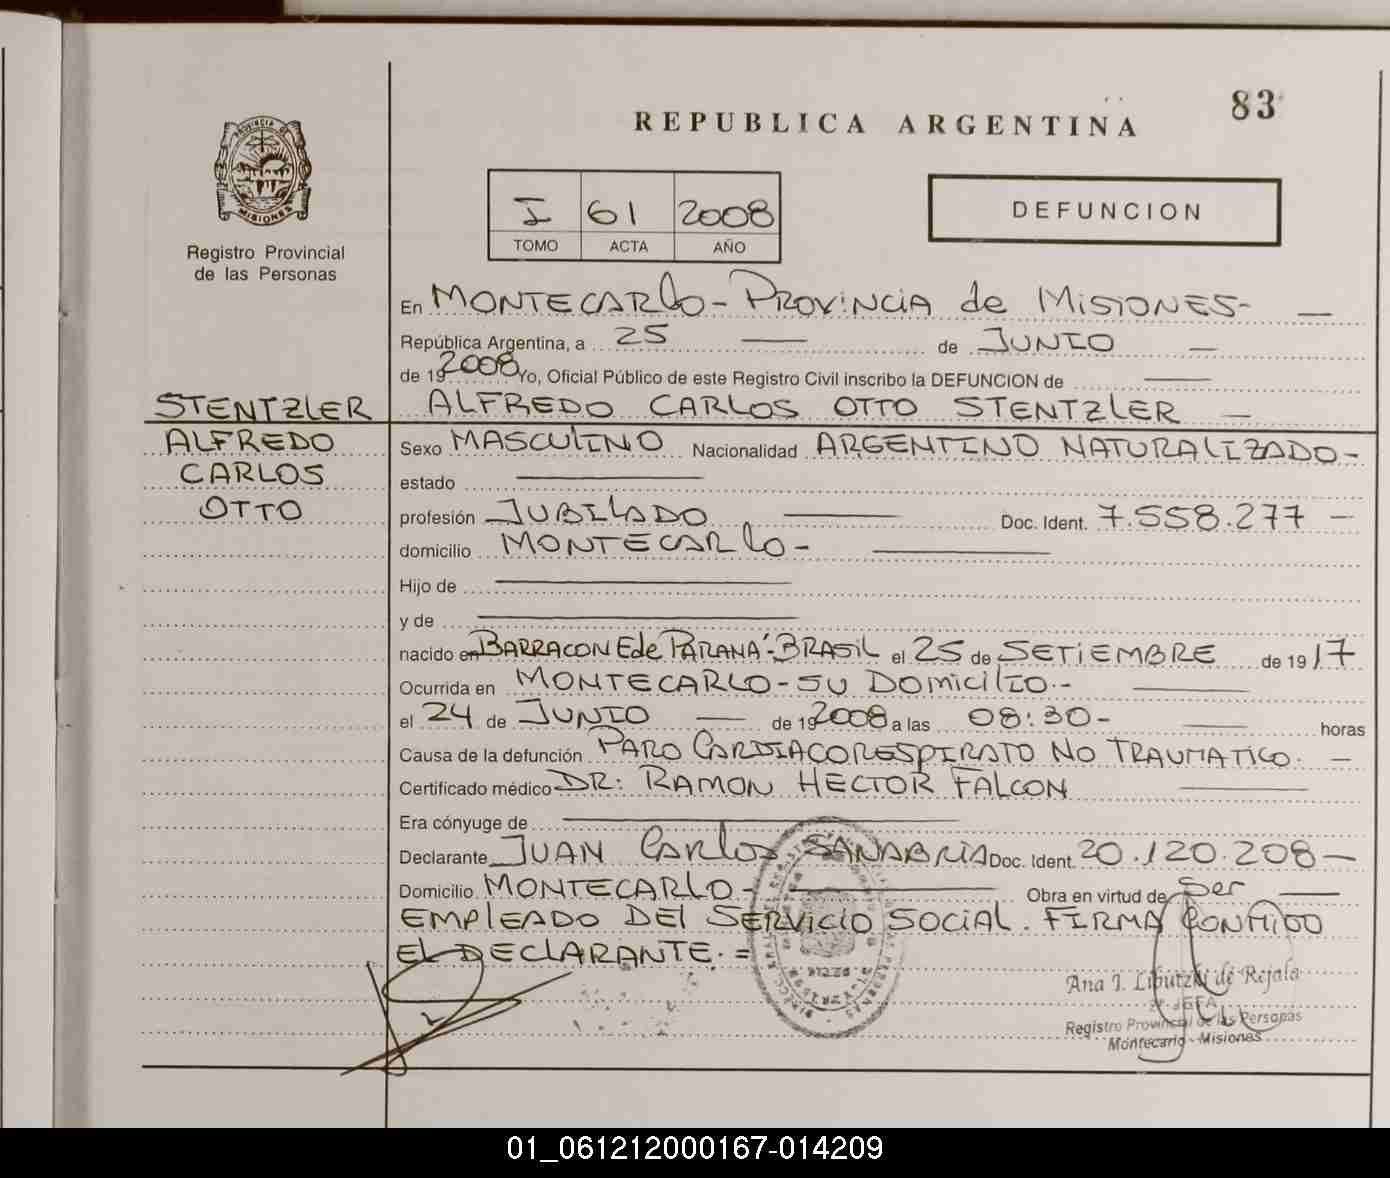 83
REPUBLICA ARGENTINA
PROVINCIA DE
MISIONES
Registro Provincial
de las Personas
I 61 2008
TOMO ACTA AÑO
DEFUNCION
En MONTECARLO - PROVINCIA de MISIONES -
República Argentina, a 25 de JUNIO
de 19 2008 Yo, Oficial Público de este Registro Civil inscribo la DEFUNCION de
STENTZLER ALFREDO CARLOS OTTO STENTZLER
ALFREDO
CARLOS
OTTO
Sexo MASCULINO Nacionalidad ARGENTINO NATURALIZADO -
estado
profesión JUBILADO Doc. Ident. 7.558.277 -
domicilio MONTECARLO -
Hijo de
y de
nacido en BARRACON E de PARANÁ - BRASIL el 25 de SETIEMBRE de 19 17
Ocurrida en MONTECARLO - SU DOMICILIO. -
el 24 de JUNIO de 19 2008 a las 08:30 - horas
Causa de la defunción PARO CARDIACORESPIRATO NO TRAUMATICO. -
Certificado médico DR: RAMON HECTOR FALCON
Era cónyuge de
Declarante JUAN CARLOS SANABRIA Doc. Ident. 20.120.208 -
Domicilio MONTECARLO - Obra en virtud de Ser
EMPLEADO DEL SERVICIO SOCIAL. FIRMA CONMIGO
EL DECLARANTE. =
Ana I. Libutzki de Rejala
JEFA
Registro Provincial de las Personas
Montecarlo - Misiones
01_061212000167-014209